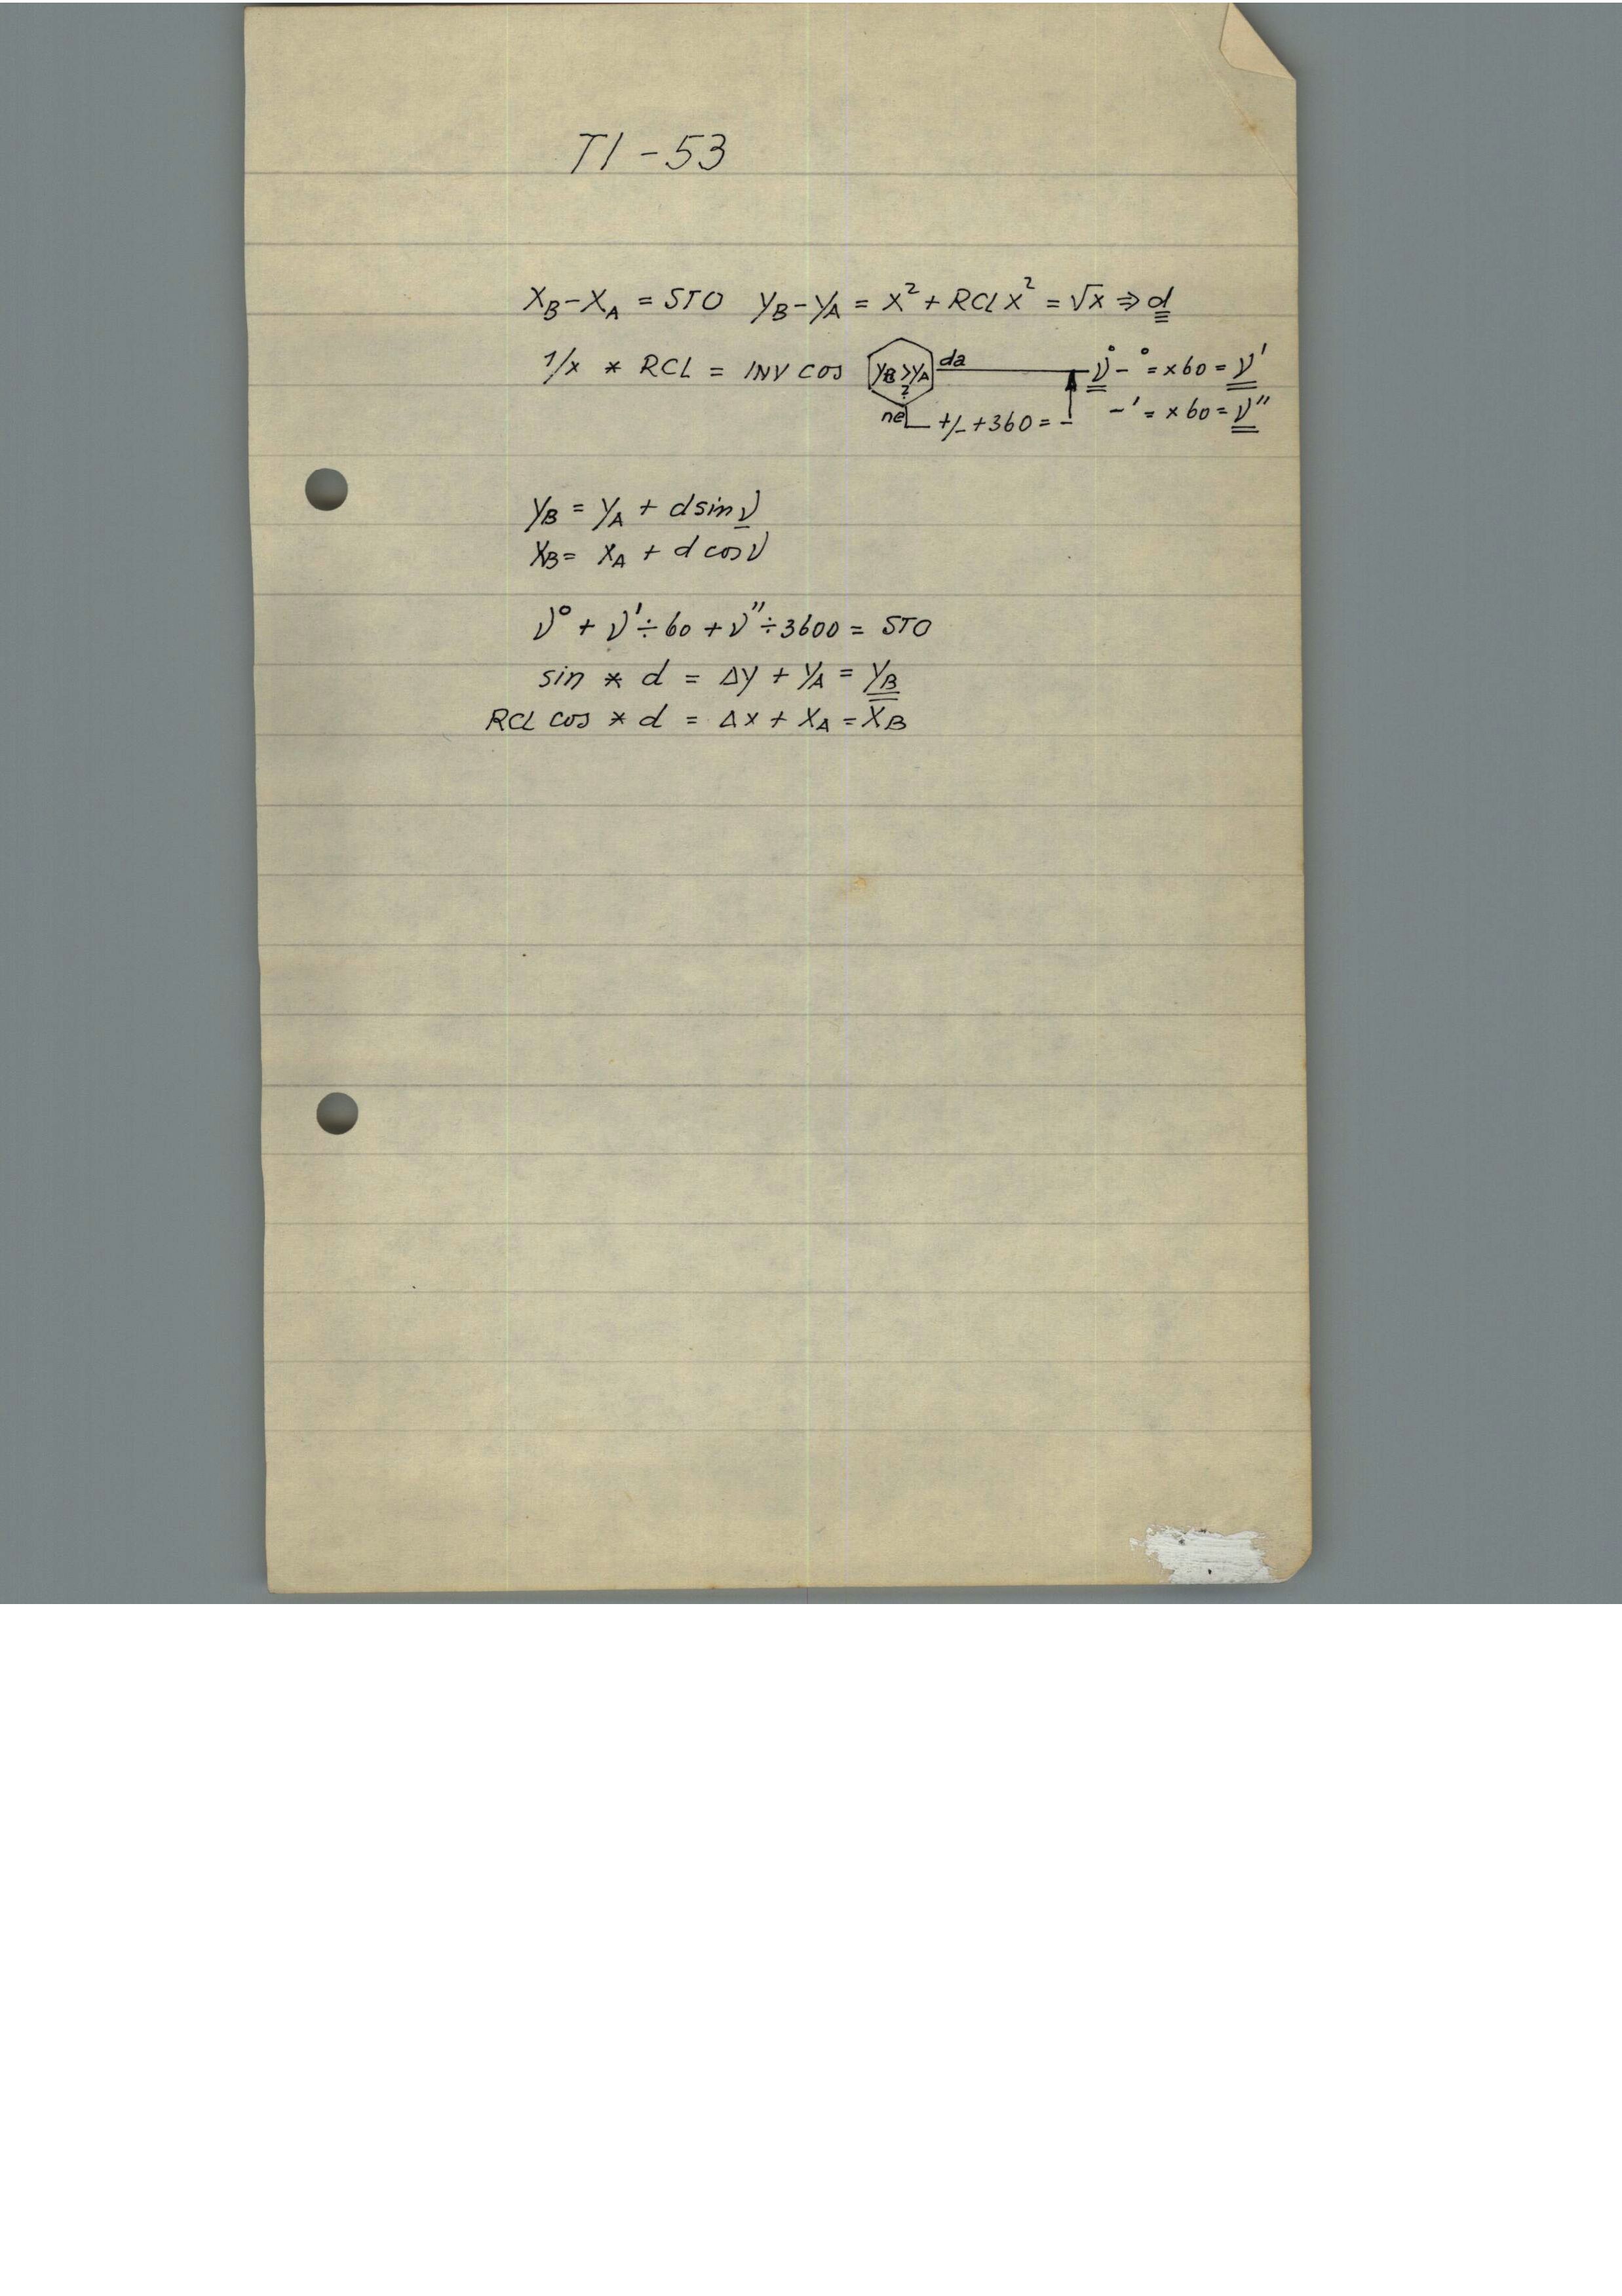 TI-53
X_B - X_A = STO  Y_B - Y_A = X² + RCL X² = √x ⇒ d
1/x * RCL = INV COS  Y_B > Y_A ?  da  ν° - ° = x 60 = ν'
ne  +/- + 360 =  - ' = x 60 = ν''
Y_B = Y_A + d sin ν
X_B = X_A + d cos ν
ν° + ν' ÷ 60 + ν'' ÷ 3600 = STO
sin * d = Δy + Y_A = Y_B
RCL cos * d = Δx + X_A = X_B